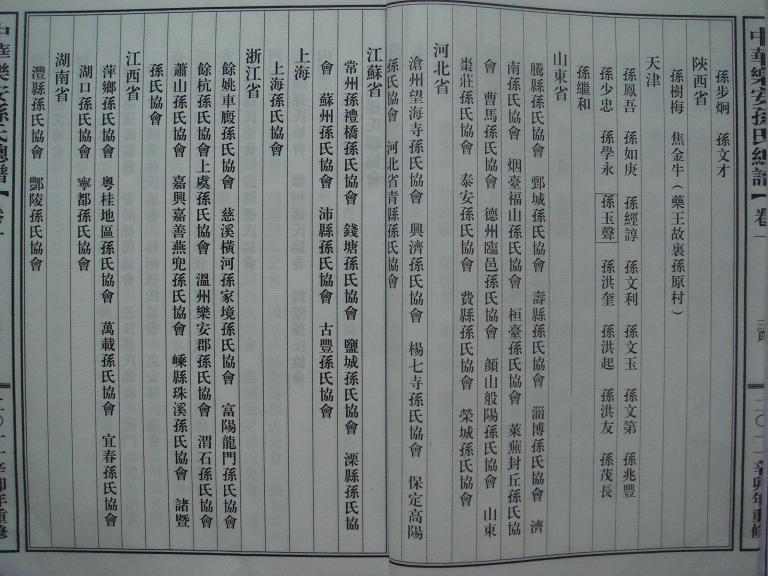 中華樂安孫氏總譜【卷一
二〇一一辛卯年重修
孫步炯　孫文才
陝西省
孫樹梅　焦金牛（藥王故裏孫原村）
天津
孫鳳吾　孫如庚　孫經諄　孫文利　孫文玉　孫文第　孫兆豐
孫少忠　孫學永　孫玉聲　孫洪奎　孫洪起　孫洪友　孫茂長
孫繼和
山東省
騰縣孫氏協會　鄄城孫氏協會　壽縣孫氏協會　淄博孫氏協會　濟
南孫氏協會　烟臺福山孫氏協會　桓臺孫氏協會　萊蕪封丘孫氏協
會　曹馬孫氏協會　德州臨邑孫氏協會　顏山般陽孫氏協會　山東
棗莊孫氏協會　泰安孫氏協會　費縣孫氏協會　榮城孫氏協會
河北省
滄州望海寺孫氏協會　興濟孫氏協會　楊七寺孫氏協會　保定高陽
孫氏協會　河北省青縣孫氏協會
江蘇省
常州孫禮橋孫氏協會　錢塘孫氏協會　鹽城孫氏協會　溧縣孫氏協
會　蘇州孫氏協會　沛縣孫氏協會　古豐孫氏協會
上海
上海孫氏協會
浙江省
餘姚車廄孫氏協會　慈溪橫河孫家境孫氏協會　富陽龍門孫氏協會
餘杭孫氏協會上虞孫氏協會　溫州樂安郡孫氏協會　渭石孫氏協會
蕭山孫氏協會　嘉興嘉善燕兜孫氏協會　嵊縣珠溪孫氏協會　諸暨
孫氏協會
江西省
萍鄉孫氏協會　粵桂地區孫氏協會　萬載孫氏協會　宜春孫氏協會
湖口孫氏協會　寧都孫氏協會
湖南省
灃縣孫氏協會　酃陵孫氏協會
中華樂安孫氏總譜【卷一
二〇一一辛卯年重修